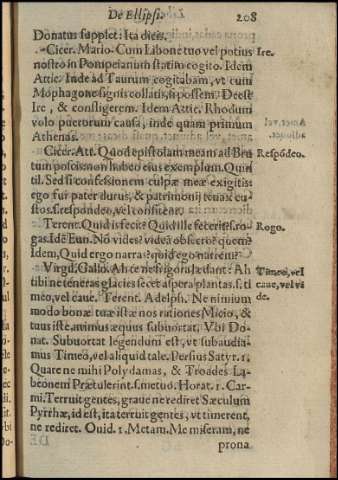 De Ellipsi. 208
Donatus supplet: Ita dicis.
Cicer. Mario. Cum Libone tuo vel potius Ire.
nostro in Pompeianum statim cogito. Idem
Attic. Inde ad Taurum cogitabam, vt cum
Mophagone signis collatis, si possem. Deest
Ire, & consligerem. Idem Attic. Rhodum
volo puerorum causa, inde quam primum
Athenas.
Cicer. Att. Quod epistolam meam ad Bru Respõdeo.
tum poscis: non habeo eius exemplum. Quin
til. Sed si confessionem culpæ meæ exigitis:
ego fur pater durus, & patrimonij tenax cu-
stos. s. respondeo, vel confitear.
Terent. Quid is fecit? Quid ille fecerit? s. ro- Rogo.
gas. Ide Eun. Nõ vides? videã obsecro? quem?
Idem, Quid ergo narra? quid ego narrem?
Virgil. Gallo. Ah te ne frigora lædant: Ah Timeo, vel
tibi ne teneras glacies secet aspera plantas. s. ti caue, vel vi
meo, vel caue. Terent. Adelph. Ne nimium de.
modo bonæ tuæ istæ nos rationes Micio, &
tuus iste animus æquus subuortat. Vbi Do-
nat. Subuortat legendum est, vt subaudia-
mus Timeo, vel aliquid tale. Persius Satyr. 1.
Quare ne mihi Polydamas, & Troades La-
beonem Prætulerint. s. metuo. Horat. 1. Car-
mi. Terruit gentes, graue ne rediret Sæculum
Pyrrhæ, id est, ita terruit gentes, vt timerent,
ne rediret. Ouid. 1. Metam. Me miseram, ne
prona